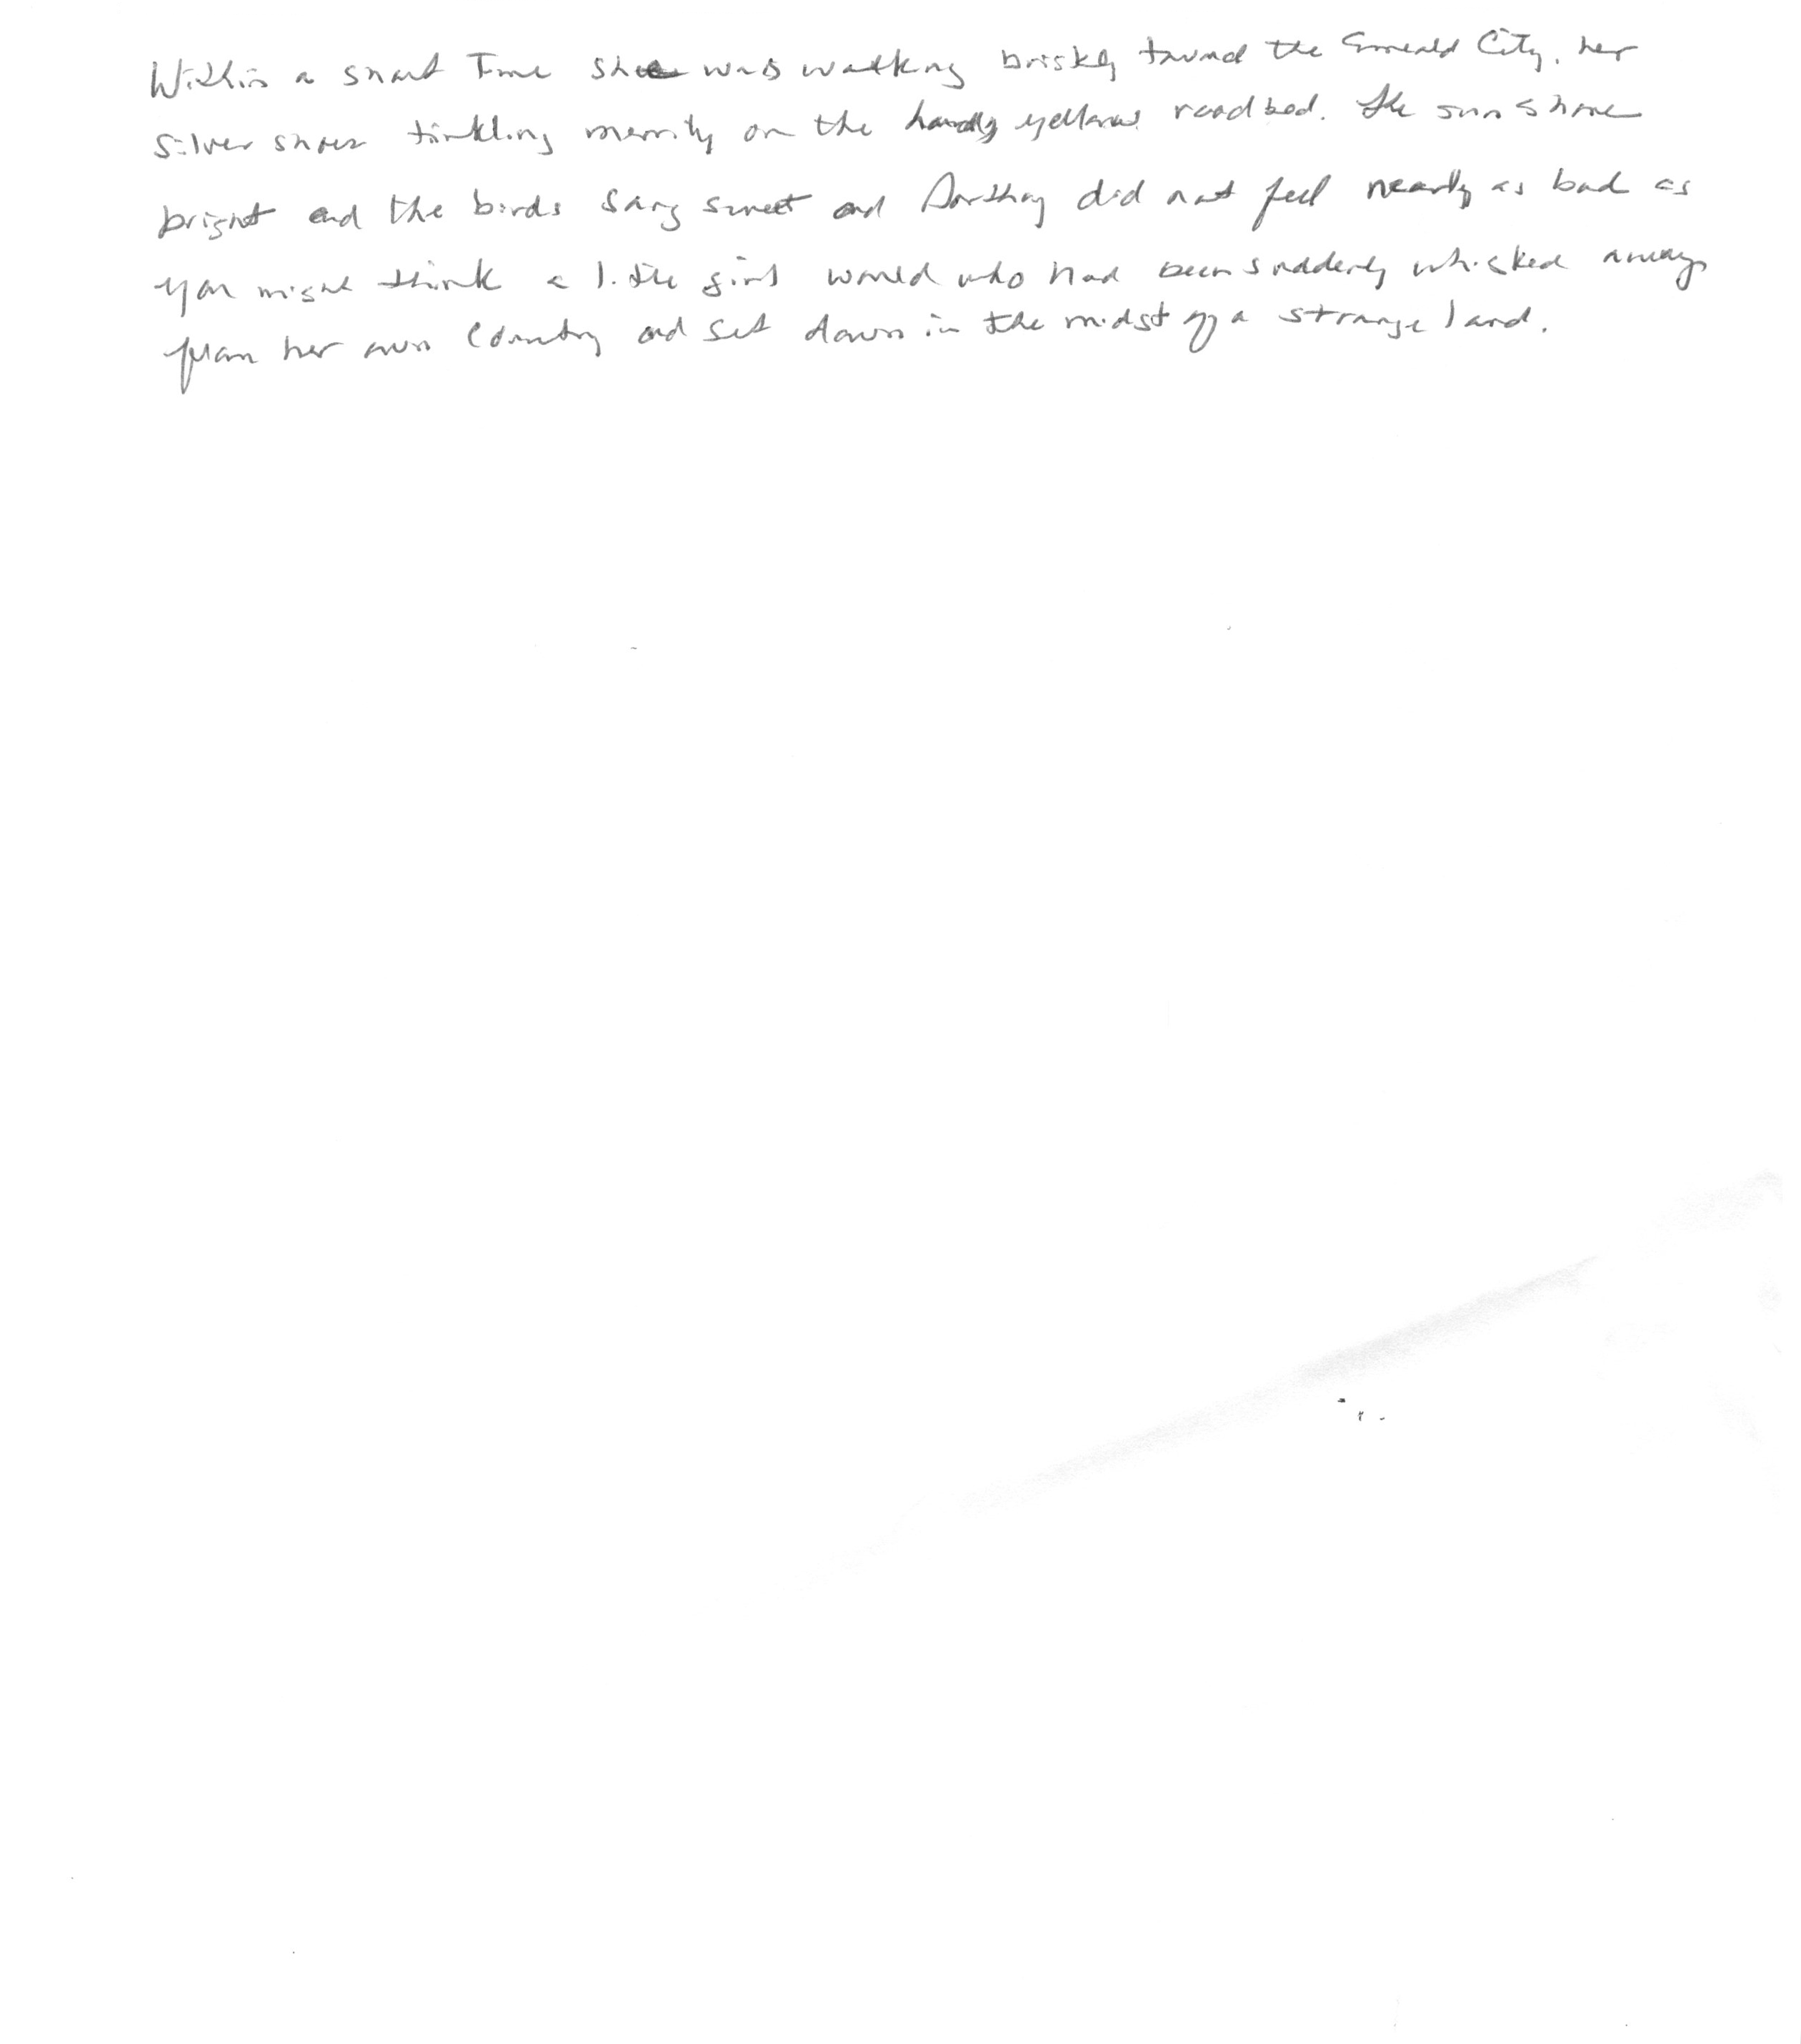 Within a short Time she was walking briskly toward the Emerald City, her
silver shoes tinkling merrily on the yellow roadbed. The sun shone
bright and the birds sang sweet and Dorothy did not feel nearly as bad as
you might think a little girl would who had been suddenly whisked away
from her own country and set down in the midst of a strange land.